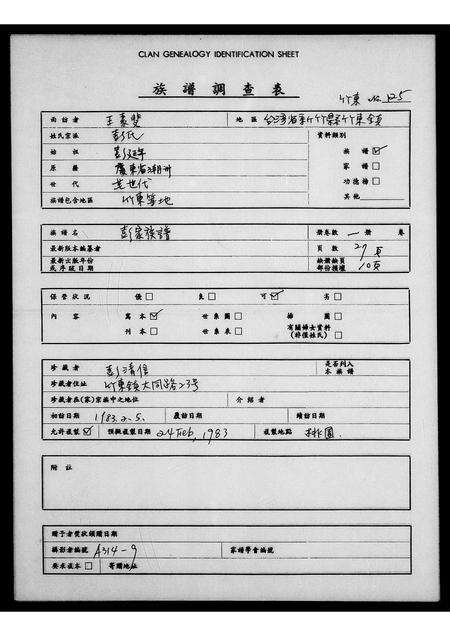 CLAN GENEALOGY IDENTIFICATION SHEET
族譜調查表
竹東 No. 125
面訪者 王袁斐 地區 台灣省新竹縣竹東鎮
姓氏宗派 彭氏 資料類別
始祖 彭延年 族譜 ☑
原籍 廣東省潮州 家譜 □
世代 廿世代 功德榜 □
族譜包含地區 竹東等地 其他
族譜名 彭家族譜 冊卷數 一 冊 卷
最新版本編纂者 頁數 27 頁
最新出版年份 缺冊缺頁
或序跋日期 部份損壞 10頁
保管狀況 優 □ 良 □ 可 ☑ 劣 □
內容 寫本 ☑ 世系圖 □ 揷圖 □
刊本 □ 世系表 □ 有關婦女資料 □
(非僅姓氏)
珍藏者 彭清信 是否列入
本族譜
珍藏者住址 竹東鎮大同路23號
珍藏者在(家)宗族中之地位 介紹者
初訪日期 1983.2.5. 覆訪日期 續訪日期
允許複製 ☑ 預擬複製日期 24 Feb, 1983 複製地點 桃園.
附註
贈予者獎狀頒贈日期
攝影者編號 A314-9 家譜學會編號
要求複本 □ 寄贈地址